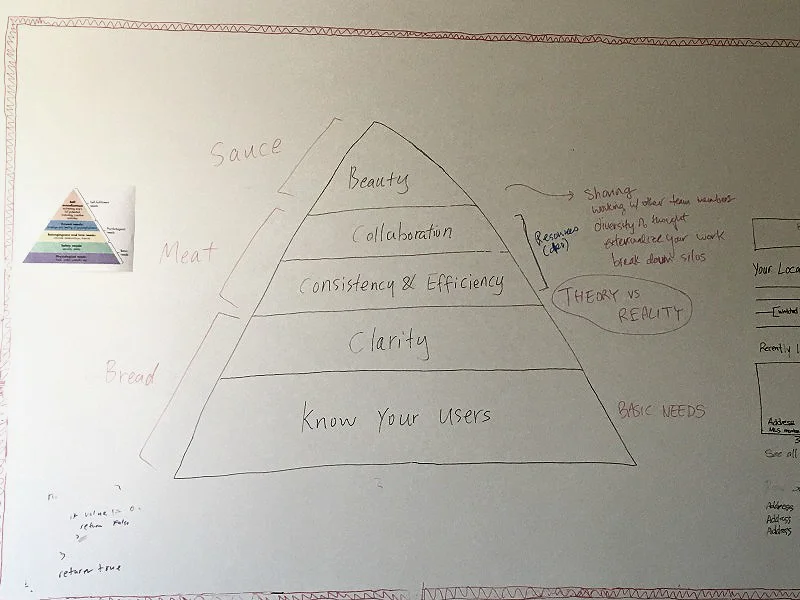 Sauce
Beauty
Sharing
working w/ other team members
diversity of thought
externalize your work
break down silos
Meat
Collaboration
Resources
Consistency & Efficiency
THEORY vs
REALITY
Bread
Clarity
Know Your Users
BASIC NEEDS
Your Loca
Recently L
Address
See all
Address
Address
Address
if value != 0
return False
}
}
return true